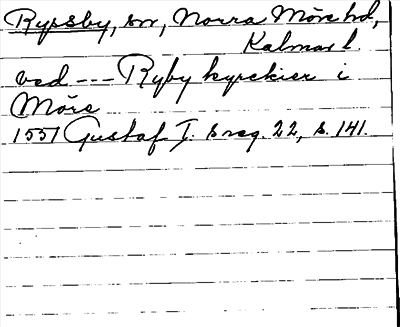 Rypsby, sn, Norra Möre hd,
Kalmar l.
ved --- Ryby kyrekier i
Möre
1551 Gustaf I. breg. 22, s. 141.